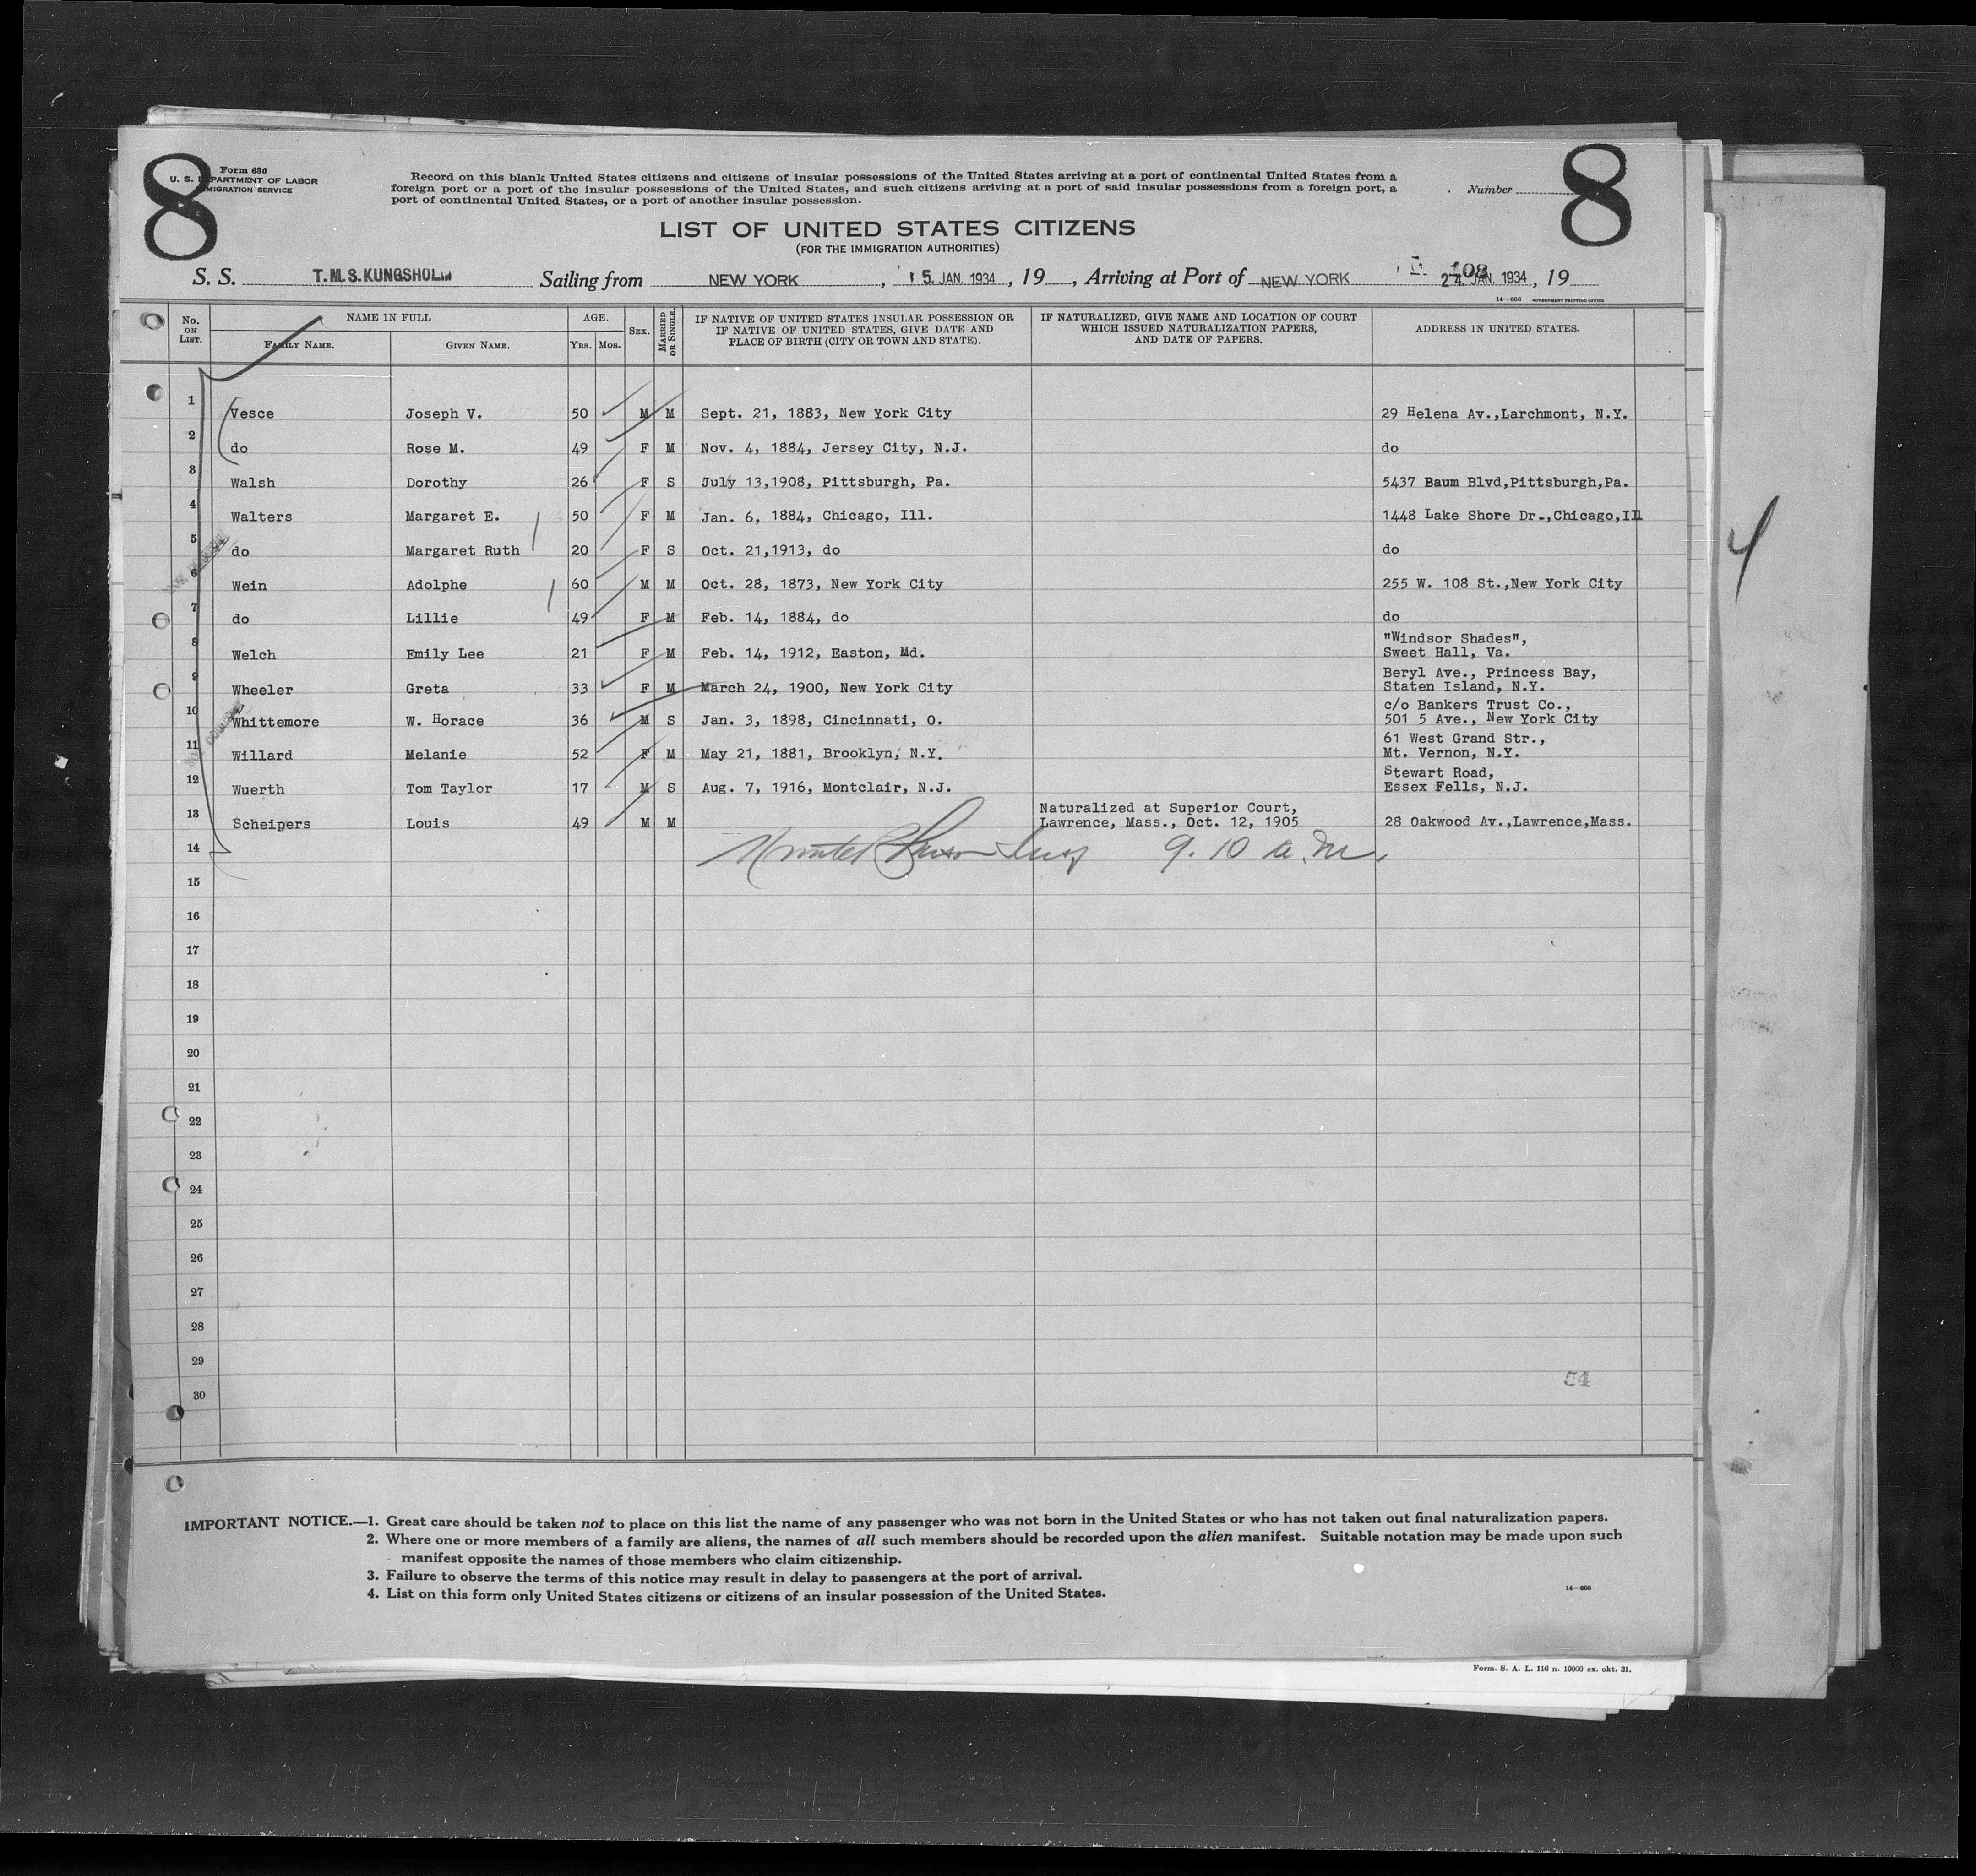 8
Form 630
U. S. DEPARTMENT OF LABOR
IMMIGRATION SERVICE
Record on this blank United States citizens and citizens of insular possessions of the United States arriving at a port of continental United States from a
foreign port or a port of the insular possessions of the United States, and such citizens arriving at a port of said insular possessions from a foreign port, a
port of continental United States, or a port of another insular possession.
Number
8
LIST OF UNITED STATES CITIZENS
(FOR THE IMMIGRATION AUTHORITIES)
108
S. S. T.M.S.KUNGSHOLM Sailing from NEW YORK, 15. JAN. 1934, 19 , Arriving at Port of NEW YORK 24. JAN. 1934, 19
14—608 GOVERNMENT PRINTING OFFICE
No. ON LIST. NAME IN FULL FAMILY NAME. GIVEN NAME. AGE. YRS. MOS. SEX. MARRIED OR SINGLE. IF NATIVE OF UNITED STATES INSULAR POSSESSION OR IF NATIVE OF UNITED STATES, GIVE DATE AND PLACE OF BIRTH (CITY OR TOWN AND STATE). IF NATURALIZED, GIVE NAME AND LOCATION OF COURT WHICH ISSUED NATURALIZATION PAPERS, AND DATE OF PAPERS. ADDRESS IN UNITED STATES.
1 Vesce Joseph V. 50 M M Sept. 21, 1883, New York City 29 Helena Av.,Larchmont, N.Y.
2 do Rose M. 49 F M Nov. 4, 1884, Jersey City, N.J. do
3 Walsh Dorothy 26 F S July 13,1908, Pittsburgh, Pa. 5437 Baum Blvd,Pittsburgh,Pa.
4 Walters Margaret E. 50 F M Jan. 6, 1884, Chicago, Ill. 1448 Lake Shore Dr.,Chicago,Ill
5 do Margaret Ruth 20 F S Oct. 21,1913, do do
6 Wein Adolphe 60 M M Oct. 28, 1873, New York City 255 W. 108 St.,New York City
7 do Lillie 49 F M Feb. 14, 1884, do do
8 Welch Emily Lee 21 F M Feb. 14, 1912, Easton, Md. "Windsor Shades",
Sweet Hall, Va.
9 Wheeler Greta 33 F M March 24, 1900, New York City Beryl Ave., Princess Bay,
Staten Island, N.Y.
10 Whittemore W. Horace 36 M S Jan. 3, 1898, Cincinnati, O. c/o Bankers Trust Co.,
501 5 Ave., New York City
11 Willard Melanie 52 F M May 21, 1881, Brooklyn, N.Y. 61 West Grand Str.,
Mt. Vernon, N.Y.
12 Wuerth Tom Taylor 17 M S Aug. 7, 1916, Montclair, N.J. Stewart Road,
Essex Fells, N.J.
13 Scheipers Louis 49 M M Naturalized at Superior Court,
Lawrence, Mass., Oct. 12, 1905 28 Oakwood Av.,Lawrence,Mass.
14 9.10 a.m.
15
16
17
18
19
20
21
22
23
24
25
26
27
28
29
54
30
4
IMPORTANT NOTICE.—1. Great care should be taken not to place on this list the name of any passenger who was not born in the United States or who has not taken out final naturalization papers.
2. Where one or more members of a family are aliens, the names of all such members should be recorded upon the alien manifest. Suitable notation may be made upon such
manifest opposite the names of those members who claim citizenship.
3. Failure to observe the terms of this notice may result in delay to passengers at the port of arrival.
4. List on this form only United States citizens or citizens of an insular possession of the United States.
14—608
Form. S. A. L. 116 n. 10000 ex. okt. 31.